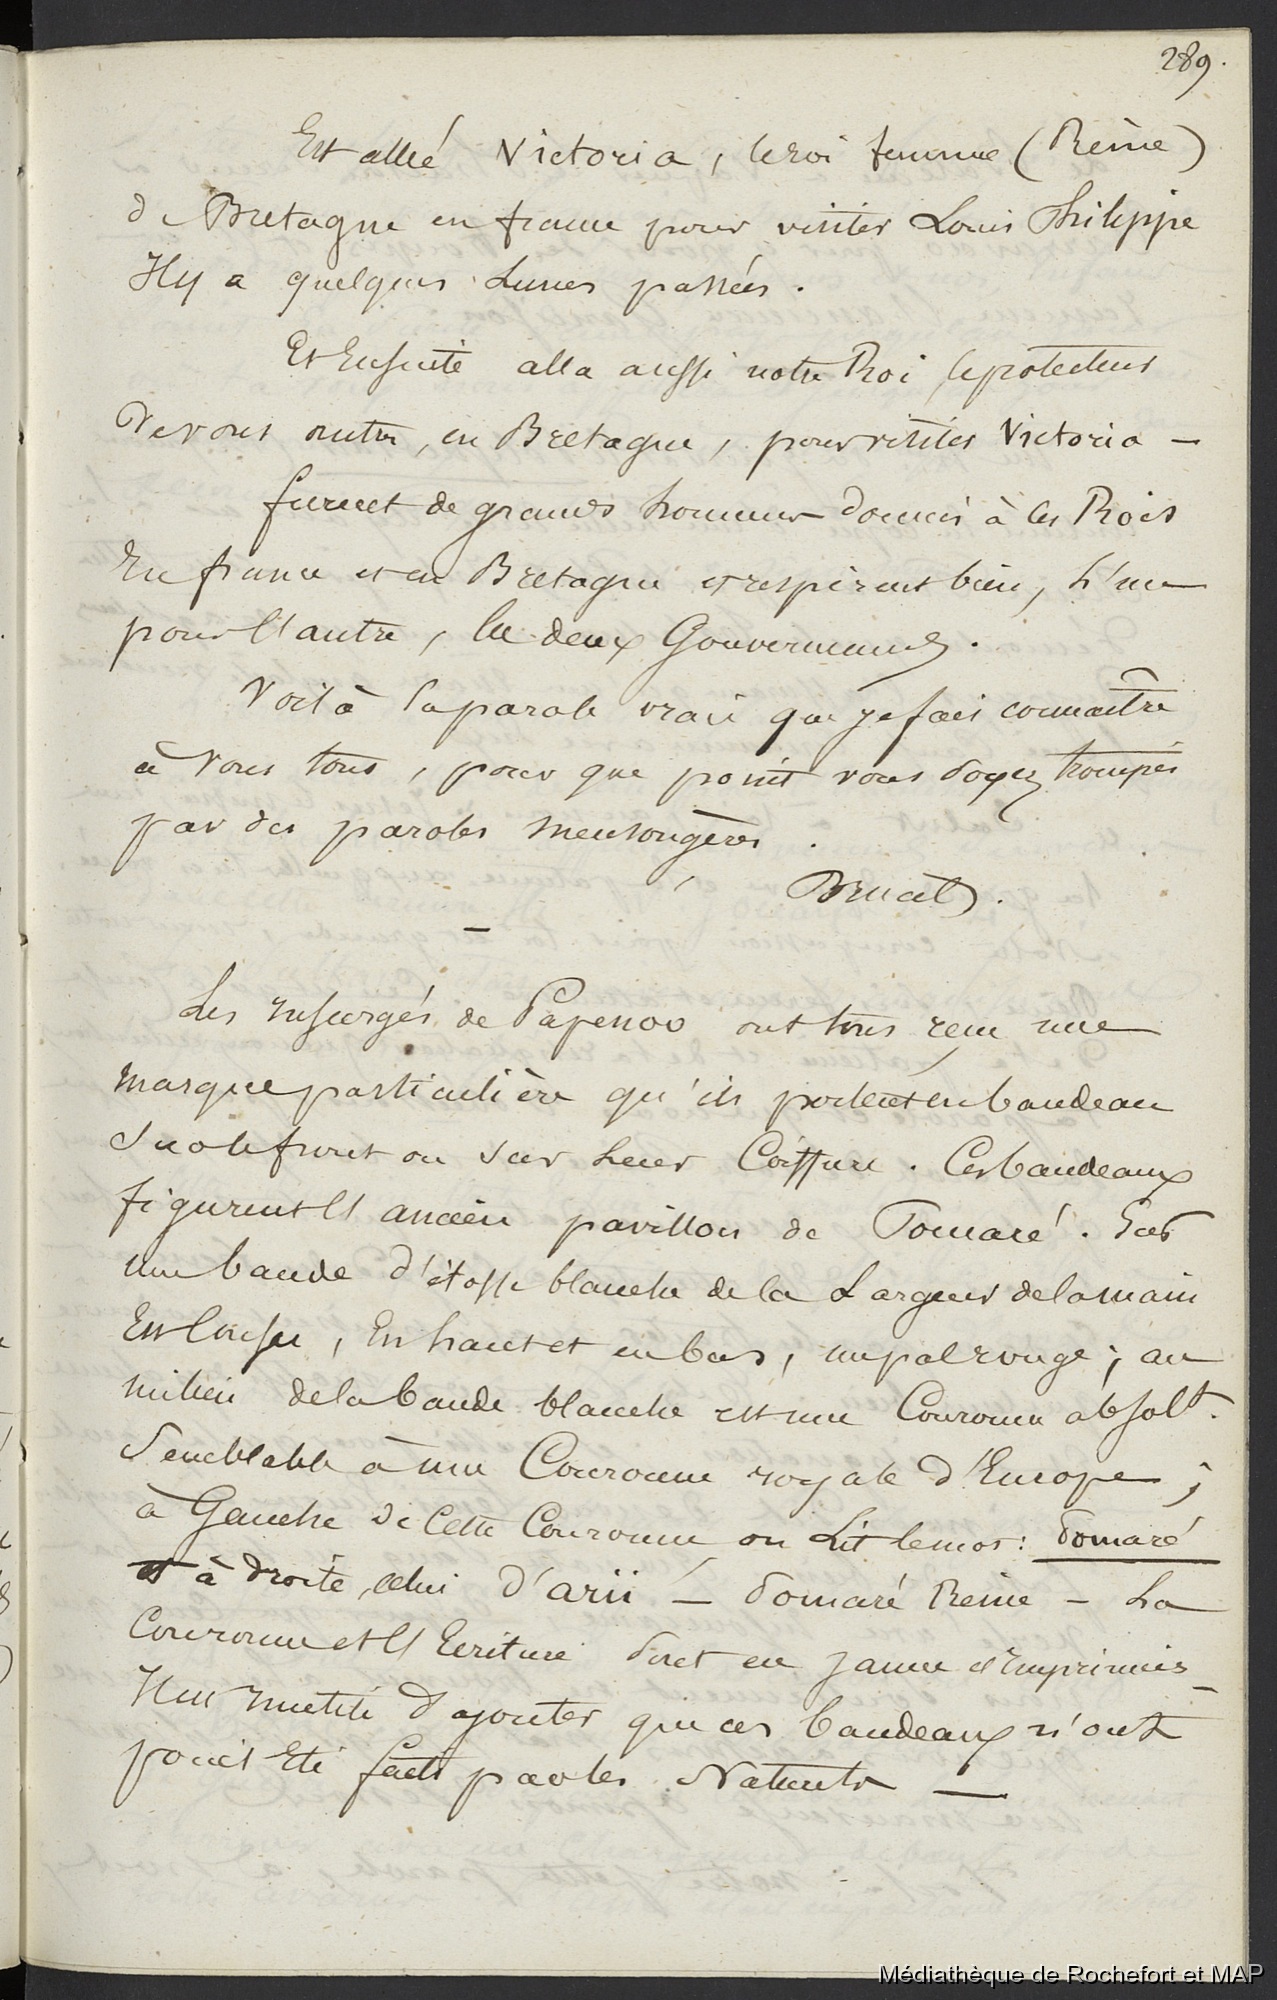 289.
Est allé Victoria, le roi femme (Reine)
de Bretagne en france pour visiter Louis Philippe
Il y a quelques Lunes passées.
Et Ensuite alla aussi notre Roi le protecteur
De vous autres, en Bretagne, pour visiter Victoria —
furent de grands honneurs donnés à ces Rois
En france et en Bretagne et respirent bien, L'un
pour l'autre, les deux Gouvernements.
Voilà la parole vraie que je fais connaître
à Vous tous, pour que point vous soyez trompés
par des paroles mensongères.
Bruat.
—
Les insurgés de Papenoo ont tous reçu une
marque particulière qu'ils portent en bandeau
sur le front ou sur leur Coiffure. Ces bandeaux
figurent l'ancien pavillon de Pomaré. Sur
une bande d'étoffe blanche de la Largeur de la main
Est Cousu, En haut et en bas, un pal rouge; au
milieu de la bande blanche est une Couronne absolt.
Semblable à une Couronne royale d'Europe;
à Gauche de Cette Couronne on Lit le mot: Pomaré
et à droite, celui d'arii — Pomaré Reine — La
Couronne et l'Ecriture sont en jaune et Imprimés —
Il est inutile d'ajouter que ces bandeaux n'ont
point Eté faits par les Naturels —
Médiathèque de Rochefort et MAP